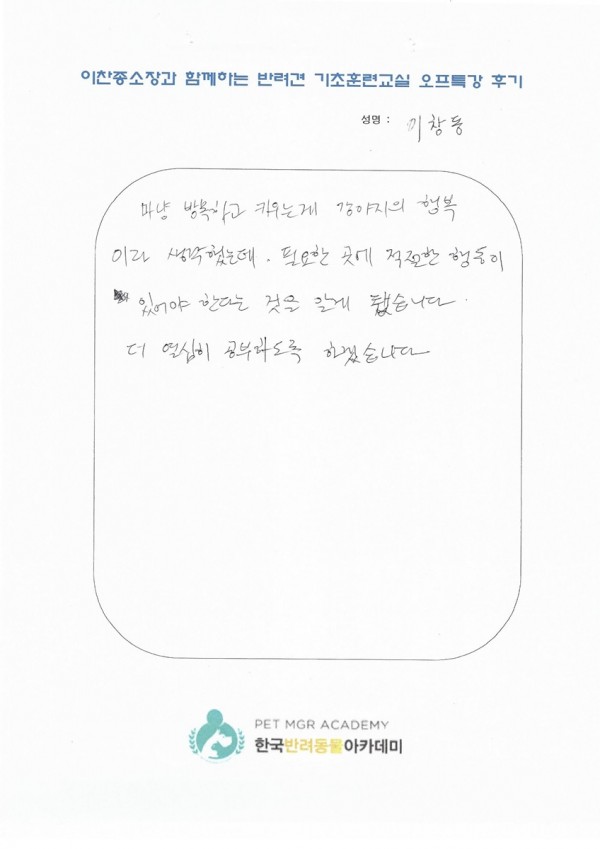 이찬종소장과 함께하는 반려견 기초훈련교실 오프특강 후기
성명 : 이창동
마냥 방목하고 키우는게 강아지의 행복
이라 생각했는데. 필요한 곳에 적절한 행동이
있어야 한다는 것을 알게 됐습니다.
더 열심히 공부하도록 하겠습니다
PET MGR ACADEMY
한국반려동물아카데미